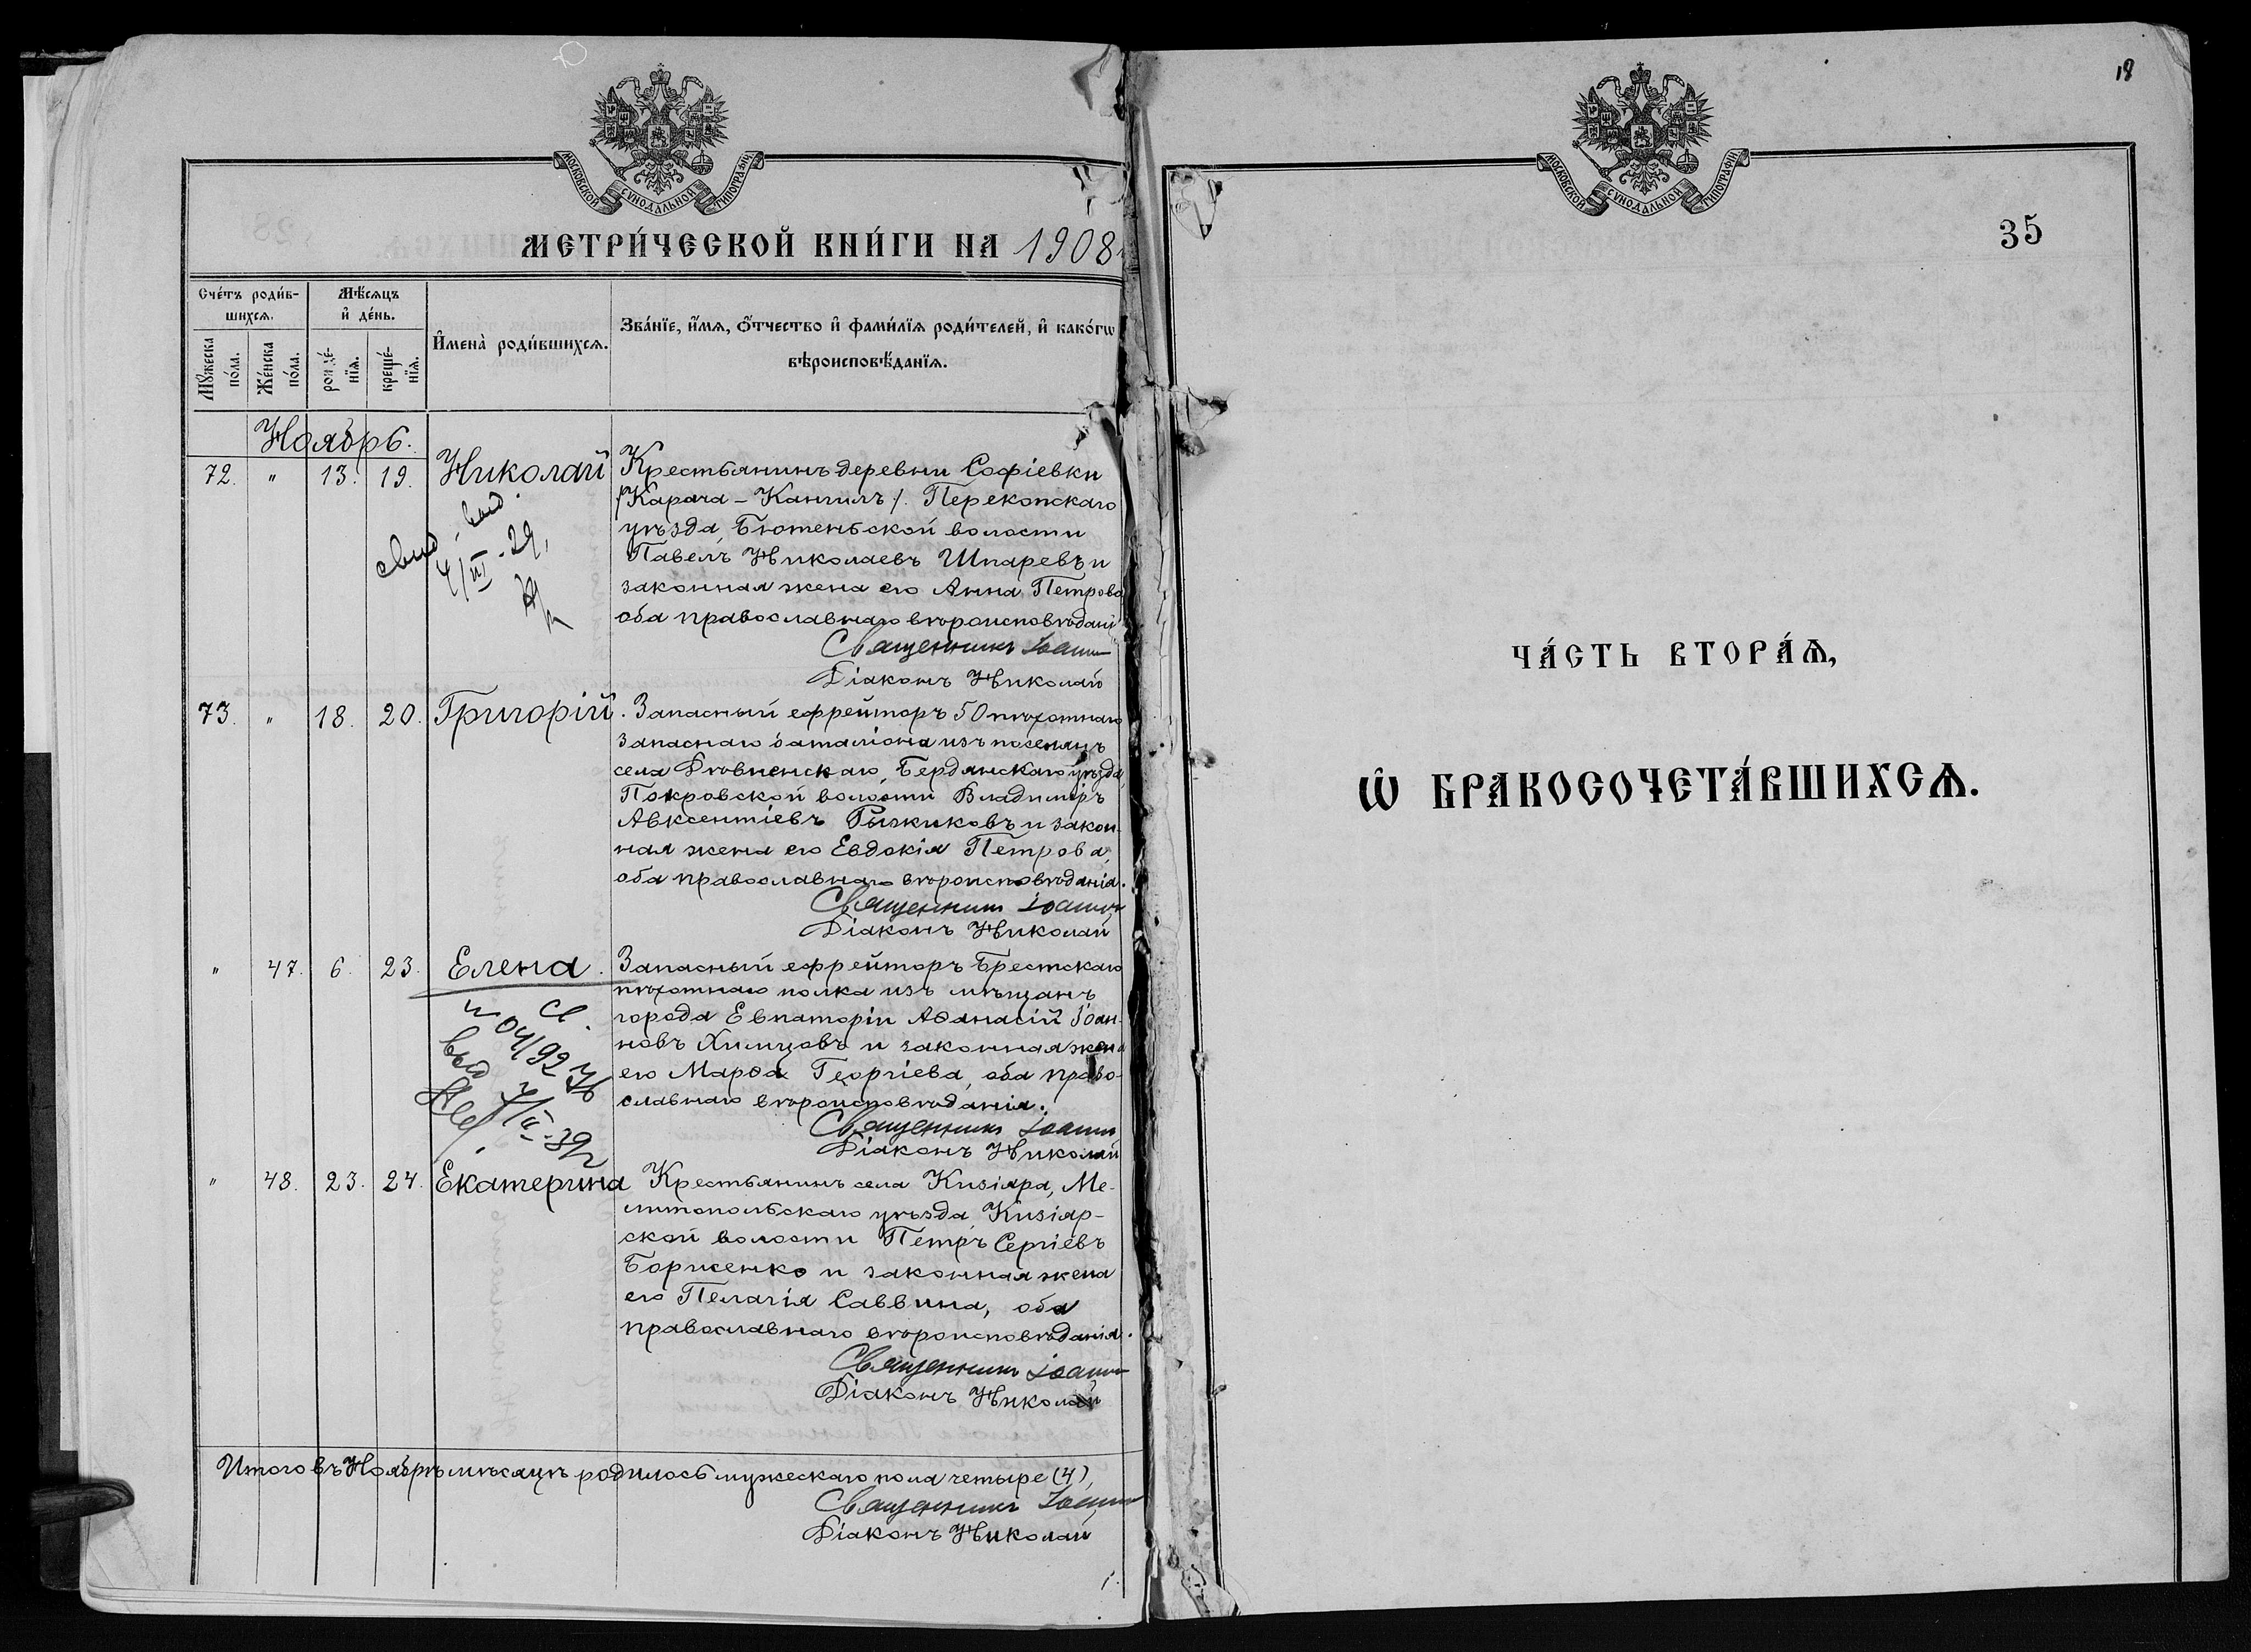 18
МОСКОВСКОЙ СѴНОДАЛЬНОЙ ТИПОГРАФІИ
МЕТРИ́ЧЕСКОЙ КНИ́ГИ НА 1908
Сче́тъ роди́в-
шихсѧ.
Мѣ́сѧцъ
и҆ де́нь.
И҆мена̀ роди́вшихсѧ.
Зва́нїе, и҆́мѧ, ѻ҆́тчество и҆ фами́лїѧ роди́телей, и҆ како́гѡ
вѣроисповѣ́данїѧ.
Мꙋ́жеска
по́ла.
Же́нска
по́ла.
рожде́-
нїѧ.
креще́-
нїѧ.
Ноябрь.
72. " 13. 19. Николай
Крестьянинъ деревни Софіевки
/Карача-Кангилъ/. Перекопскаго
уѣзда, Бютеньской волости
Павелъ Николаевъ Шпаревъ и
законная жена его Анна Петрова
оба православнаго вѣроисповѣданi
Священникъ Іоаннъ
Діаконъ Николай
свид. выд.
4/III-29.
73. " 18. 20. Григорій.
Запасный ефрейторъ 50 пѣхотнаго
запаснаго баталіона изъ поселянъ
села Дѣвненскаго, Бердянскаго уѣзда,
Покровской волости Владиміръ
Авксентіевъ Рыжиковъ и закон-
ная жена его Евдокія Петрова,
оба православнаго вѣроисповѣданія.
Священникъ Іоаннъ
Діаконъ Николай
" 47. 6. 23. Елена.
Запасный ефрейторъ Брестскаго
пѣхотнаго полка изъ мѣщанъ
города Евпаторіи Аѳанасій Іоан-
новъ Химцовъ и законная жена
его Марѳа Георгіева, оба право-
славнаго вѣроисповѣданія.
Священникъ Іоаннъ
Діаконъ Николай
св.
выд
" 48. 23. 24. Екатерина
Крестьянинъ села Кизіяра, Ме-
литопольскаго уѣзда, Кизіяр-
ской волости Петръ Сергіевъ
Борисенко и законная жена
его Пелагія Саввина, оба
православнаго вѣроисповѣданія.
Священникъ Іоаннъ
Діаконъ Николай
Итого въ Ноябрѣ мѣсяцѣ родилось мужескаго пола четыре (4),
Священникъ Іоаннъ
Діаконъ Николай
МОСКОВСКОЙ СѴНОДАЛЬНОЙ ТИПОГРАФІИ
35
ЧА́СТЬ ВТОРА́Ѧ,
Ѡ҆ БРАКОСОЧЕТА́ВШИХСѦ.